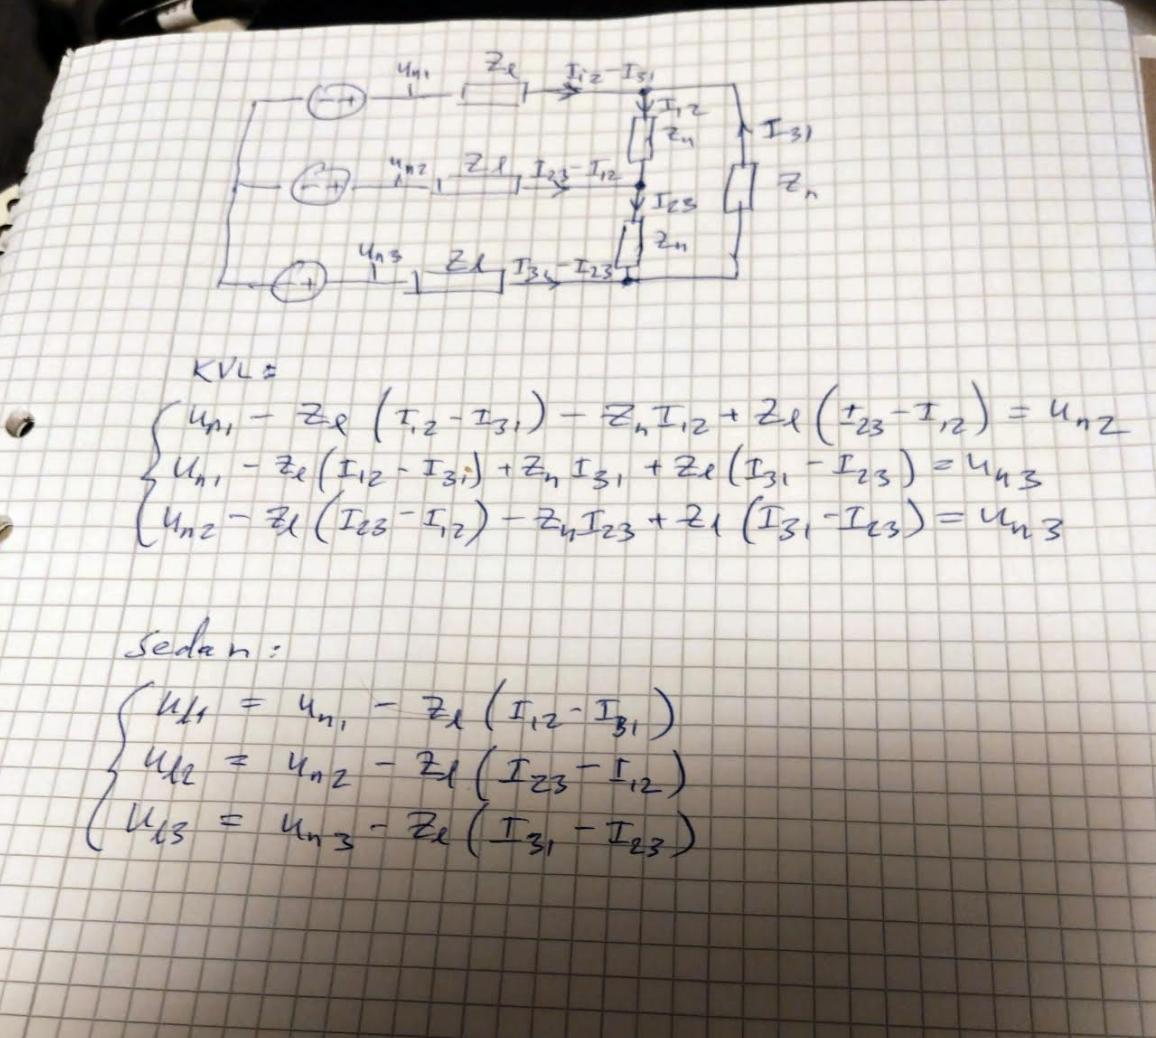 u_n1 Z_l I_12 - I_31
I_12
Z_n
I_31
u_n2 Z_l I_23 - I_12
Z_n
I_23
Z_n
u_n3 Z_l I_31 - I_23
KVL:
u_n1 - Z_l (I_12 - I_31) - Z_n I_12 + Z_l (I_23 - I_12) = u_n2
u_n1 - Z_l (I_12 - I_31) + Z_n I_31 + Z_l (I_31 - I_23) = u_n3
u_n2 - Z_l (I_23 - I_12) - Z_n I_23 + Z_l (I_31 - I_23) = u_n3
Sedan:
u_l1 = u_n1 - Z_l (I_12 - I_31)
u_l2 = u_n2 - Z_l (I_23 - I_12)
u_l3 = u_n3 - Z_l (I_31 - I_23)